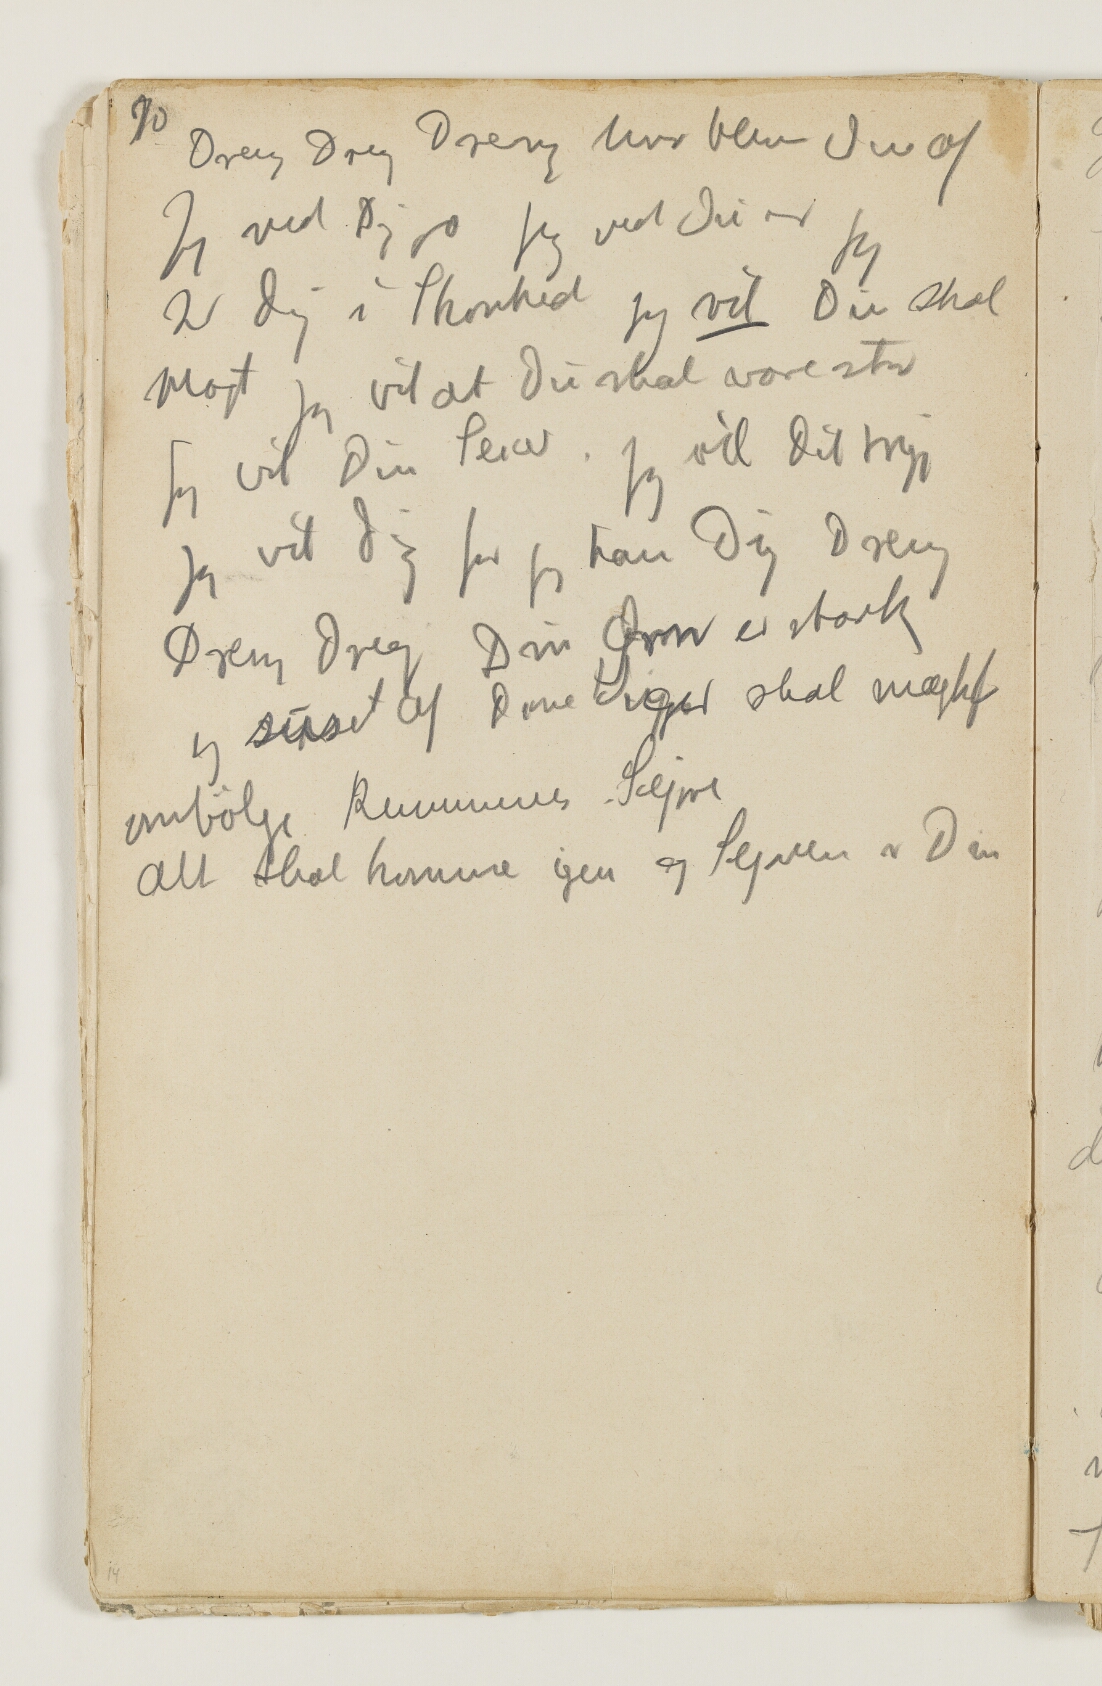 70
Dreng Dreng Dreng hvor blev Du af
Jeg ved Dig jo jeg ved Du er jeg
er Dig i Skonhed jeg vil Du skal
Magt jeg vil at Du skal være stor
Jeg vil Din Seier. jeg vil Dit
jeg vil Dig for jeg kan Dig Dreng
Dreng Dreng Din Ørn er stærk
og suset af Dine Vinger skal mægtigt
ombölge Rummenes Sejre
Alt skal komme igen og Sejren er Din
14